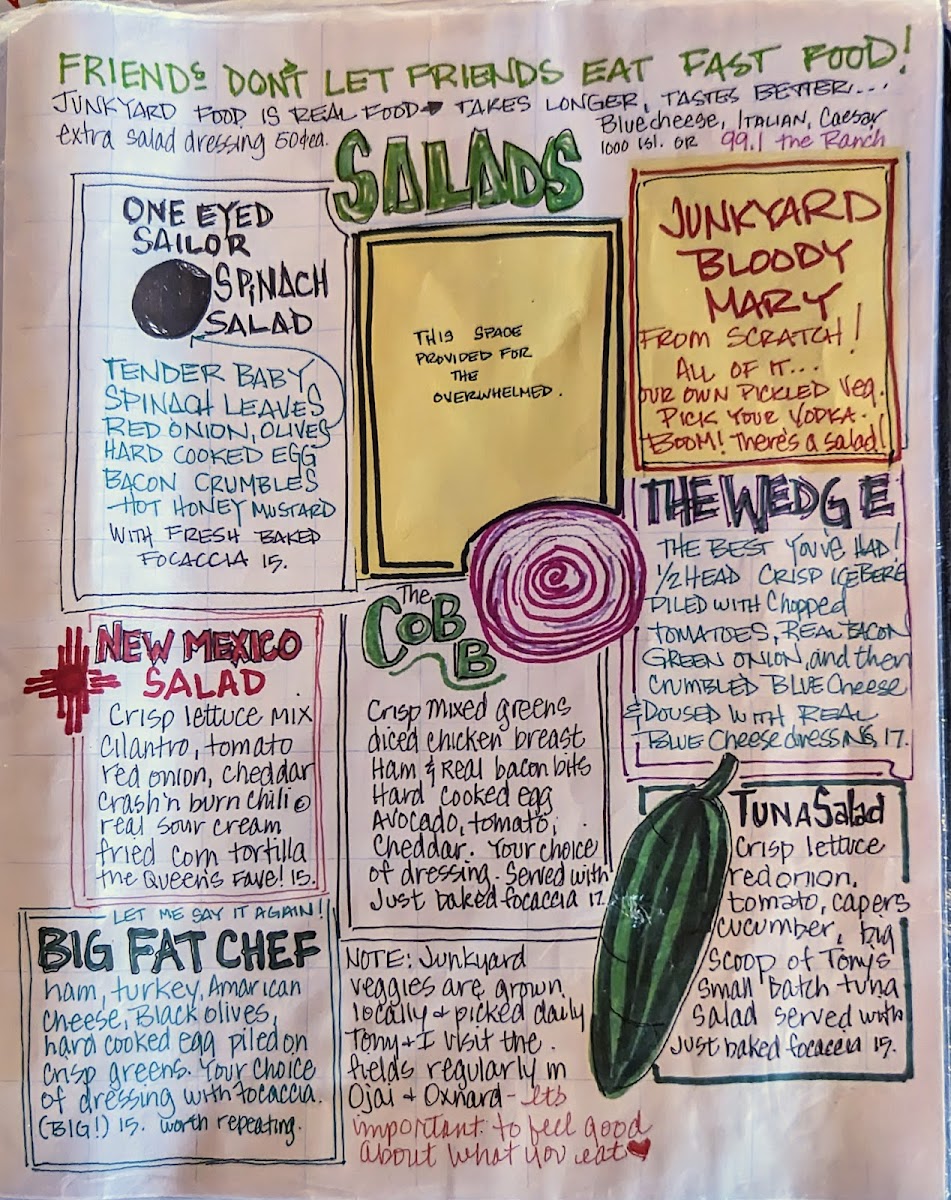 FRIENDS DON'T LET FRIENDS EAT FAST FOOD!
JUNKYARD FOOD IS REAL FOOD → TAKES LONGER, TASTES BETTER...
extra salad dressing 50¢ea.
Bluecheese, ITALIAN, Caesar
1000 ISl. OR 99.1 the Ranch
SALADS
ONE EYED
SAILOR
SPINACH
SALAD
TENDER BABY
SPINACH LEAVES
RED ONION, OLIVES
HARD COOKED EGG
BACON CRUMBLES
HOT HONEY MUSTARD
WITH FRESH BAKED
FOCACCIA 15.
THIS SPACE
PROVIDED FOR
THE
OVERWHELMED.
JUNKYARD
BLOODY
MARY
FROM SCRATCH!
ALL OF IT...
OUR OWN PICKLED Veg.
PICK YOUR VODKA.
BOOM! There's a salad!
THE WEDGE
THE BEST YOU'VE HAD!
1/2 HEAD CRISP ICEBERG
PILED WITH Chopped
TOMATOES, REAL BACON
GREEN ONION, and then
CRUMBLED BLUE Cheese
& DOUSED WITH REAL
BLUE Cheese dressing 17.
NEW MEXICO
SALAD
Crisp lettuce MIX
cilantro, tomato
red onion, cheddar
Crash'n burn chili
real sour cream
fried corn tortilla
the Queen's Fave! 15.
The
COBB
Crisp Mixed greens
diced chicken breast
Ham & Real bacon bits
Hard Cooked egg
Avocado, tomato,
Cheddar. Your choice
of dressing. Served with
Just baked focaccia 17
TUNA Salad
Crisp lettuce
red onion.
tomato, capers
cucumber, big
Scoop of Tony's
Small Batch tuna
Salad served with
Just baked focaccia 15.
LET ME SAY IT AGAIN!
BIG FAT CHEF
ham, turkey, Amarican
cheese, Black olives,
hard cooked egg piled on
crisp greens. Your choice
of dressing with focaccia.
(BIG!) 15. worth repeating.
NOTE: Junkyard
veggies are grown
locally + picked daily
Tony + I visit the
fields regularly in
Ojai + Oxnard - Its
important to feel good
about what you eat ♥